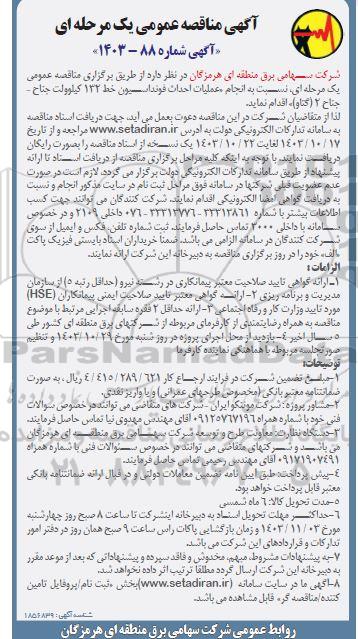 آگهی مناقصه عمومی یک مرحله ای
«آگهی شماره ۸۸ - ۱۴۰۳»
شرکت سهامی برق منطقه ای هرمزگان در نظر دارد از طریق برگزاری مناقصه عمومی
یک مرحله ای، نسبت به انجام «عملیات احداث فونداسیون خط ۱۳۲ کیلوولت جناح -
جناح ۲ (گتاو)»، اقدام نماید.
لذا از متقاضیان شرکت در این مناقصه دعوت بعمل می آید، جهت دریافت اسناد مناقصه
به سامانه تدارکات الکترونیکی دولت به آدرس www.setadiran.ir مراجعه و از تاریخ
۱۴۰۳/۱۰/۱۷ لغایت ۱۴۰۳/۱۰/۲۲ یک نسخه از اسناد مناقصه را بصورت رایگان
دریافت نمایند. با توجه به اینکه کلیه مراحل برگزاری مناقصه از دریافت اسناد تا ارائه
پیشنهاد از طریق سامانه تدارکات الکترونیکی دولت برگزار می گردد، لازم است در صورت
عدم عضویت قبلی شرکتها در سامانه فوق مراحل ثبت نام در سایت مذکور انجام و نسبت
به دریافت گواهی امضا الکترونیکی اقدام نمایند. شرکت کنندگان می توانند جهت کسب
اطلاعات بیشتر با شماره ۳۳۳۱۲۸۶۱ - ۳۳۳۱۲۷۷۶ - ۰۷۶ داخلی ۲۱۰۹ و در خصوص
سامانه با داخلی ۲۰۰۰ تماس حاصل فرمایند. ثبت شماره تلفن، فکس و ایمیل از سوی
شرکت کنندگان در سامانه الزامی می باشد. ضمنا خریداران اسناد بایستی فیزیک پاکت
«الف» خود را در روز برگزاری مناقصه به دبیرخانه این شرکت ارائه نمایند.
الزامات:
۱- ارائه گواهی تایید صلاحیت معتبر پیمانکاری در رشته نیرو (حداقل رتبه ۵) از سازمان
مدیریت و برنامه ریزی ۲- ارائه گواهی معتبر تایید صلاحیت ایمنی پیمانکاران (HSE)
مورد تایید وزارت کار و رفاه اجتماعی ۳- ارائه حداقل ۲ فقره سابقه اجرایی مرتبط با موضوع
مناقصه به همراه رضایتمندی از کارفرمای مربوطه از شرکتهای برق منطقه ای کشور طی
۵ سال اخیر ۴- بازدید از محل اجرای پروژه در روز شنبه مورخ ۱۴۰۳/۱۰/۲۹ و تنظیم
صورتجلسه مربوطه با هماهنگی نماینده کارفرما
توضیحات:
۱- مبلغ تضمین شرکت در فرایند ارجاع کار ۴/۴۱۵/۲۸۹/۶۲۱ ریال، به صورت
ضمانتنامه معتبر بانکی (مخصوص طرحهای عمرانی) و یا واریز نقدی.
۲- مشاور پروژه: شرکت مونیکو ایران - شرکت های متقاضی می توانند در خصوص سوالات
فنی خود با شماره همراه ۰۹۱۲۵۷۶۷۱۹۶ آقای مهندس مهدوی نیا تماس حاصل فرمایند.
۳- دستگاه نظارت: معاونت طرح و توسعه شرکت سهامی برق منطقه ای هرمزگان
می باشد و شرکتهای متقاضی می توانند در خصوص سئوالات فنی با شماره همراه
۰۹۱۷۱۹۰۷۴۹۱ آقای مهندس رحیمی تماس حاصل فرمایند.
۴- پیش پرداخت: طبق آیین نامه تضمین معاملات دولتی و در قبال ارائه ضمانتنامه بانکی
معتبر قابل پرداخت خواهد بود.
۵- مدت تحویل کالا: ۶ ماه شمسی
۶- حداکثر مهلت تحویل اسناد به دبیرخانه اینشرکت تا ساعت ۸ صبح روز چهارشنبه
مورخ ۱۴۰۳/۱۱/۰۳ و زمان بازگشایی پاکات راس ساعت ۹ صبح همان روز در دفتر امور
تدارکات و قراردادهای این شرکت می باشد.
۷- به پیشنهادات مشروط، مبهم، مخدوش و فاقد سپرده و پیشنهاداتی که بعد از موعد مقرر
به دبیرخانه این شرکت ارسال گردد مطلقا ترتیب اثر داده نخواهد شد.
۸- آگهی ما در سایت سامانه (www.setadiran.ir) بخش «ثبت نام/پروفایل تامین
کننده/مناقصه گر» قابل مشاهده می باشد.
شناسه آگهی: ۱۸۵۶۸۳۹
روابط عمومی شرکت سهامی برق منطقه ای هرمزگان